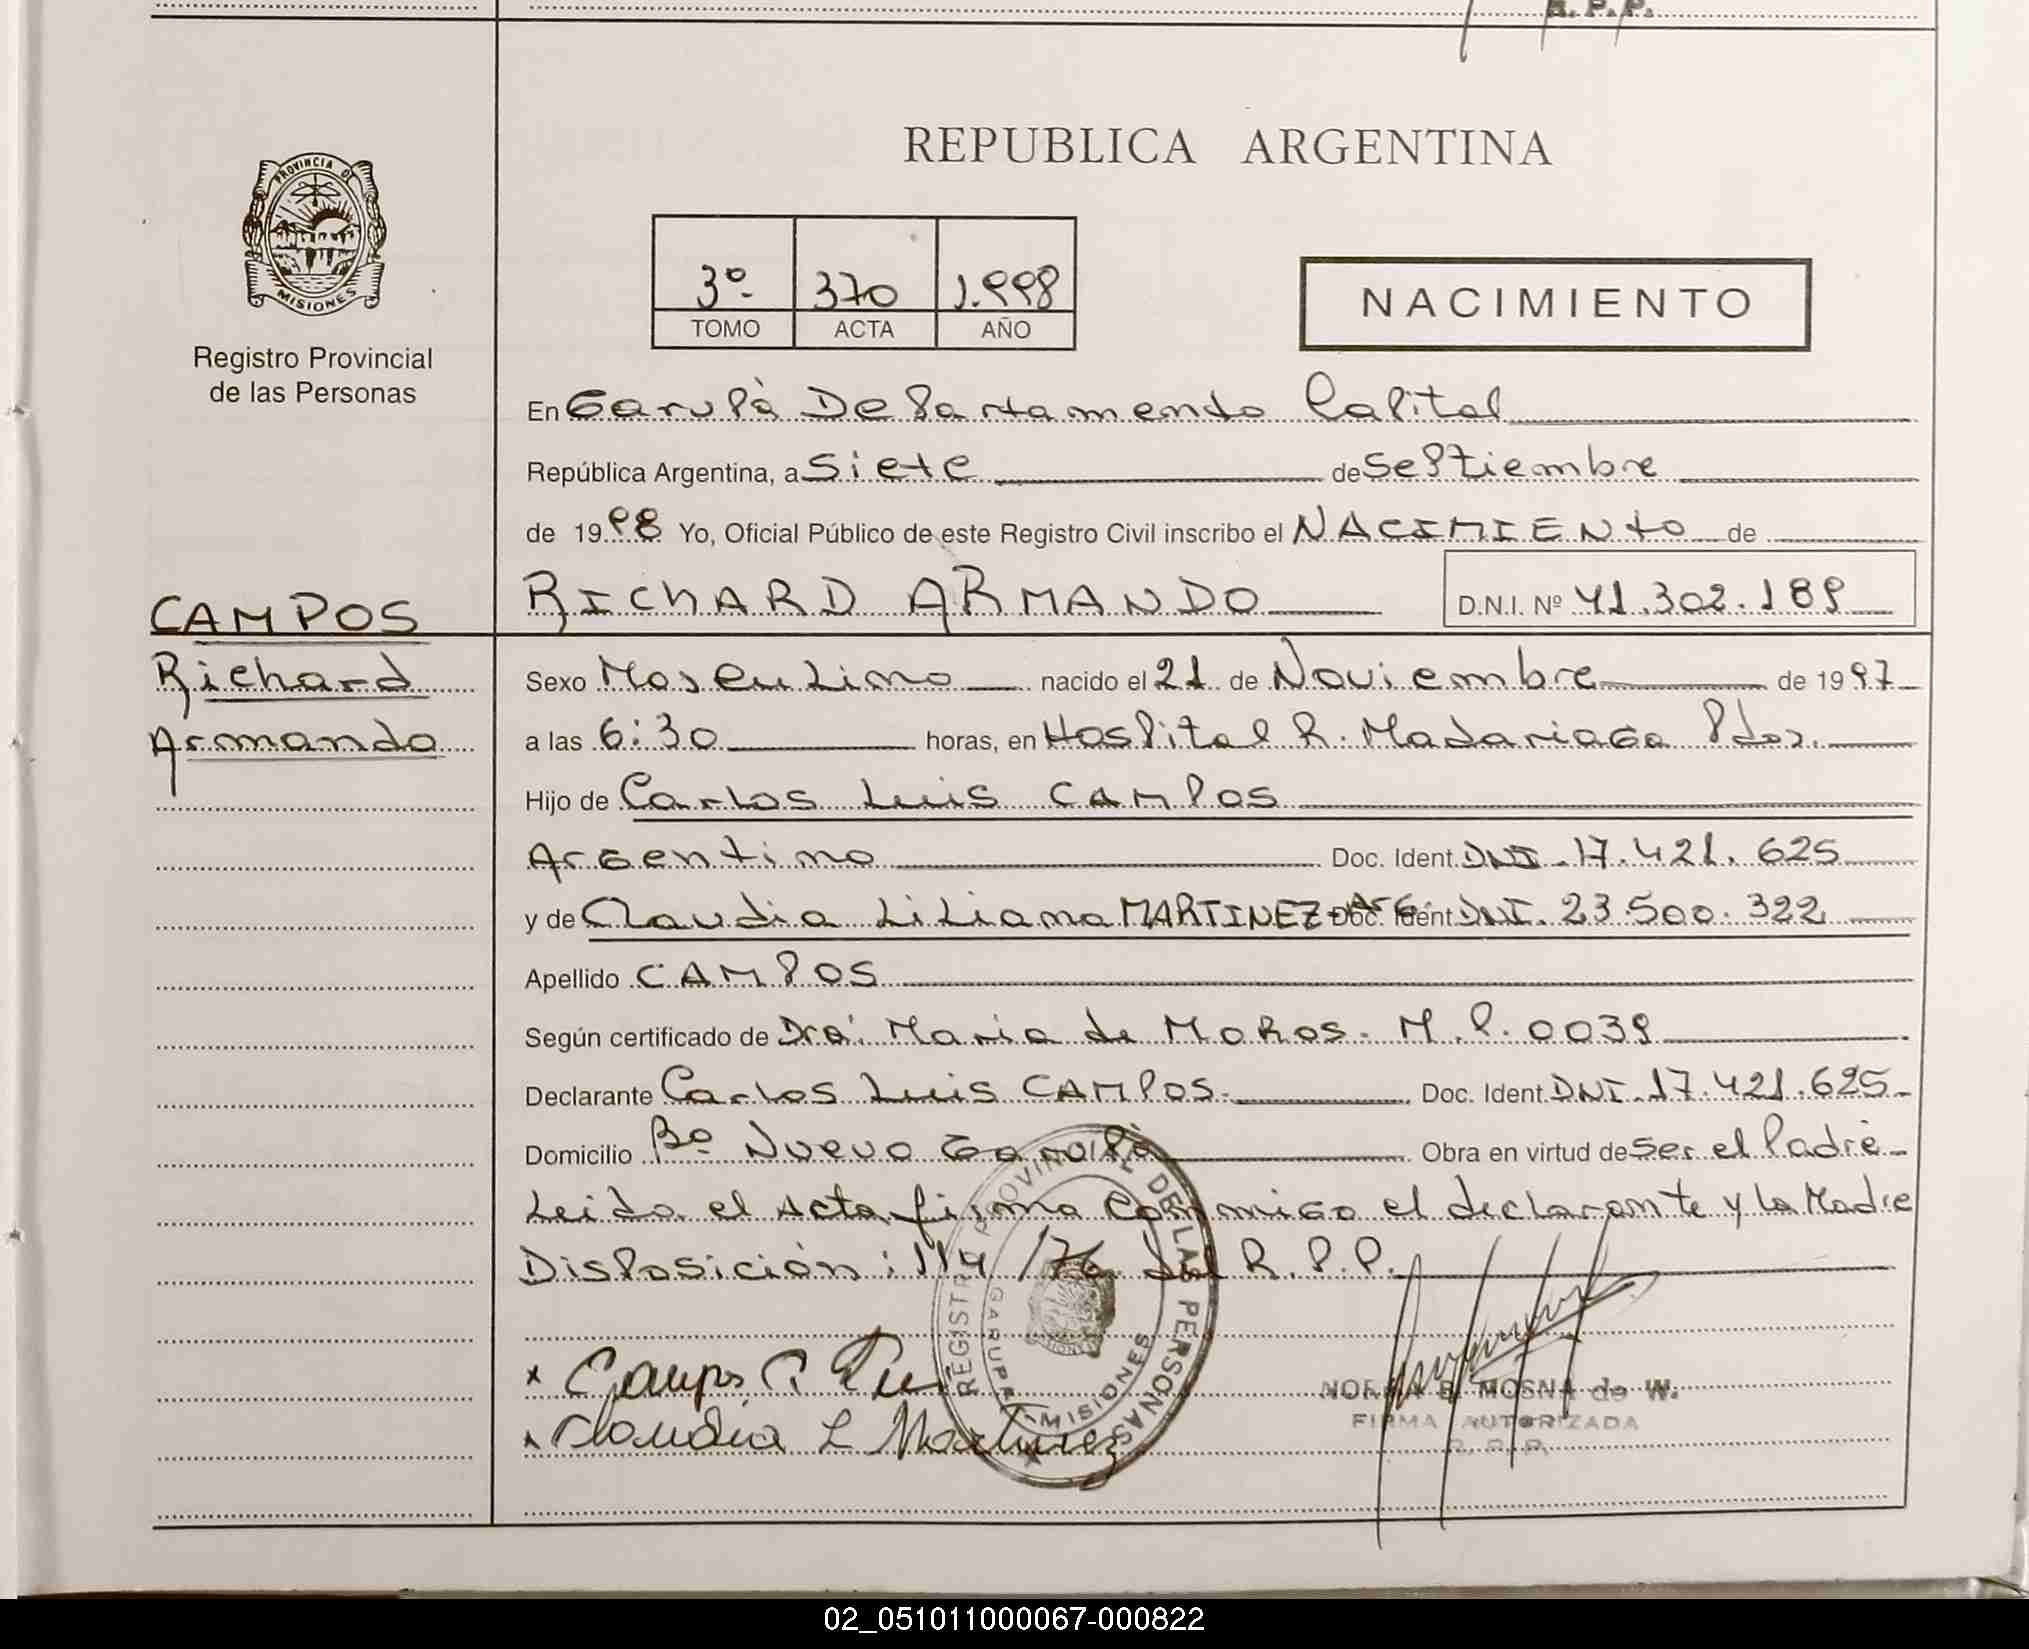 R. P. P.
REPUBLICA ARGENTINA
PROVINCIA DE
MISIONES
Registro Provincial
de las Personas
3º 370 1.998
TOMO ACTA AÑO
NACIMIENTO
En Garupà Departamendo Capital
República Argentina, a Siete de Septiembre
de 1998 Yo, Oficial Público de este Registro Civil inscribo el NACIMIENTO de
CAMPOS
Richard
Armando
RICHARD ARMANDO D.N.I. Nº 41.302.189
Sexo Masculino nacido el 21 de Noviembre de 1997
a las 6:30 horas, en Hospital R. Madariaga Pdas.
Hijo de Carlos Luis CAMPOS
Argentino Doc. Ident. DNI. 17.421.625
y de Claudia Liliana MARTINEZ - Arg. Doc. Ident. DNI. 23.500.322
Apellido CAMPOS
Según certificado de Dra. Maria de MOROS. M.P. 0039
Declarante Carlos Luis CAMPOS. Doc. Ident. DNI. 17.421.625
Domicilio Bº Nuevo Garupà Obra en virtud de ser el Padre
Leida el Acta firma conmigo el declarante y la Madre
Disposición: 114/76 del R.P.P.
REGISTRO PROVINCIAL DE LAS PERSONAS
GARUPA - MISIONES
x Campos C.
x Claudia L Martinez
NORMA B. MOSNA de W.
FIRMA AUTORIZADA
R. P. P.
02_051011000067-000822